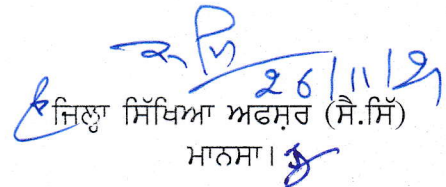 26/11/21
ਜਿਲ੍ਹਾ ਸਿੱਖਿਆ ਅਫਸ਼ਰ (ਸੈ.ਸਿੱ)
ਮਾਨਸਾ।